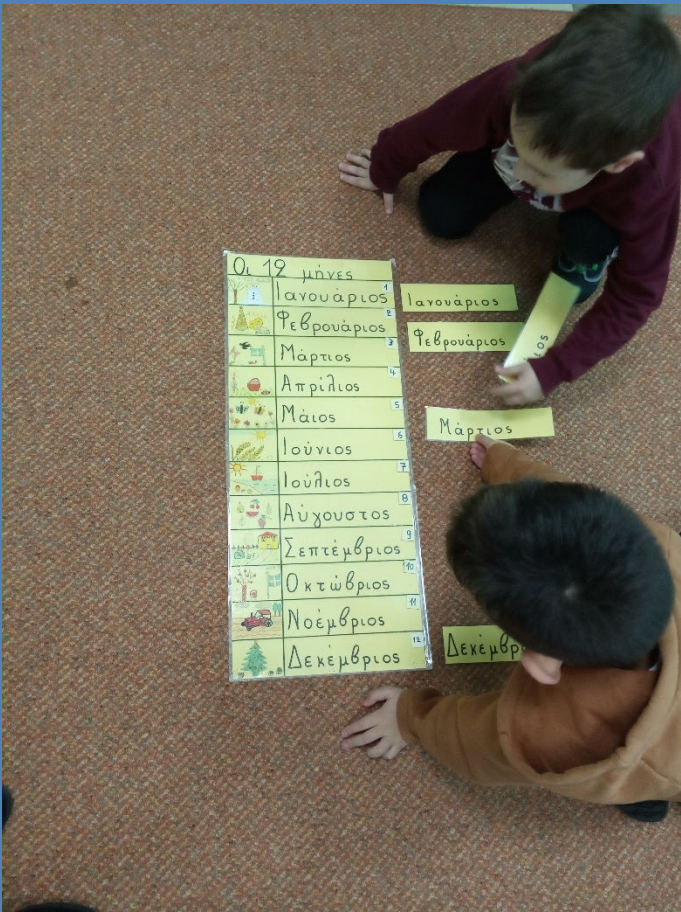 Οι 12 μήνες
Ιανουάριος 1
Φεβρουάριος 2
Μάρτιος 3
Απρίλιος 4
Μάιος 5
Ιούνιος 6
Ιούλιος 7
Αύγουστος 8
Σεπτέμβριος 9
Οκτώβριος 10
Νοέμβριος 11
Δεκέμβριος 12
Ιανουάριος
Φεβρουάριος
Μάρτιος